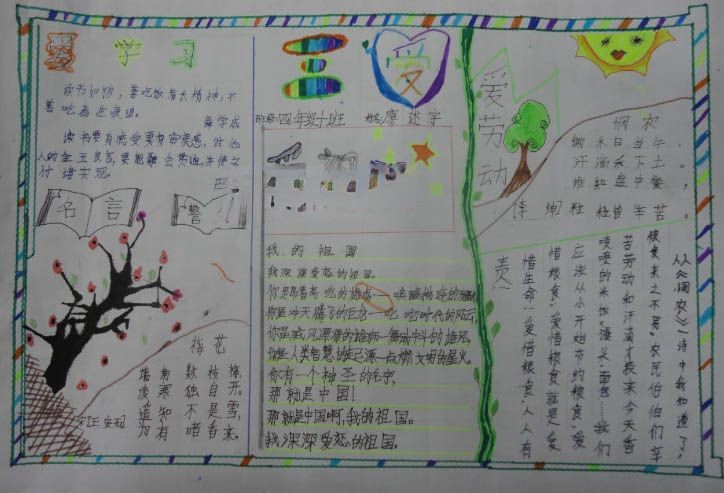 爱学习
读书如饭，善吃饭者长精神，不
善吃者生疾病。
章学成
读书要有感受要有审美感，对他
人的金玉良言，要能融会贯通，并使之
付诸实现。
名言
警
梅花
墙角数枝梅，
凌寒独自开。
遥知不是雪，
为有暗香来。
[王安石]
三爱
班级：四年级十班 姓名：廖述宇
我的祖国
我深深爱恋的祖国。
你是昂首高吭的雄鸡—唤醒拂晓的
你是冲天腾飞的巨龙—叱咤时代的风云，
你是威风凛凛的雄狮—舞动
你是人类智慧的起源—点燃文明的星火。
你有一个神圣的名字，
那就是中国！
那就是中国啊，我的祖国。
我深深爱恋的祖国。
爱劳动
悯农
锄禾日当午，
汗滴禾下土。
谁知盘中餐，
粒粒皆辛苦。
从《悯农》一诗中我知道了，
粮食来之不易。农民伯伯们辛
苦劳动和汗滴才换来今天香
喷喷的米饭，馒头，面包……我们
应该从小开始节约粮食，爱
惜粮食，爱惜粮食就是爱
惜生命！爱惜粮食，人人有
责